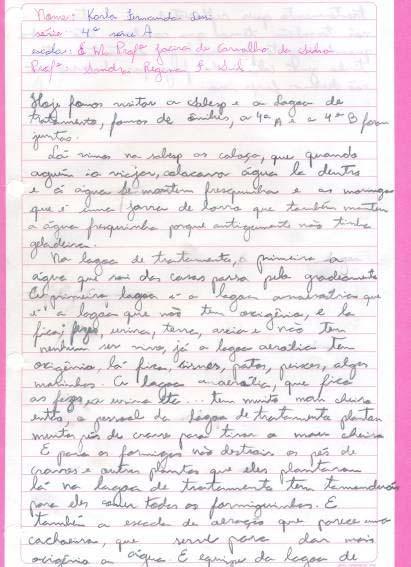 Nome: Karla Fernanda
série: 4ª série A
escola: E. M. Profª Jacira de Carvalho da Silva
Profª: Sandra Regina
Hoje fomos visitar a Sabesp e a Lagoa de
tratamento, fomos de ônibus, a 4ª A e a 4ª B foram
juntas.
Lá vimos na sabesp os cabaça, que quando
alguém ia viajar, colocava água lá dentro
e a água se mantem fresquinha e as moringas
que é uma jarra de barro que também mantem
a água fresquinha porque antigamente não tinha
geladeira.
Na lagoa de tratamento, a primeira a
água que sai das casas passa pelo gradiamento
A primeira lagoa é a lagoa anaeróbica que
é a lagoa que não tem oxigênio, e lá
fica: fezes, urina, terra, areia e não tem
nenhum ser vivo, já a lagoa aeróbia tem
oxigênio, lá fica, patos, peixes, algas
matinhos. A lagoa que fica
as fezes urina etc... tem muito mau cheiro
então, o pessoal da lagoa de tratamento plantam
muitos pés de cravo para tirar o mau cheiro
E para as formigas não destruir os pés de
cravos e outras plantas que eles plantaram
lá na lagoa de tratamento tem tamanduás
para eles comer todas as formiguinhas. E
também a escada de aeração que parece uma
cachoeira, que serve para dar mais
oxigênio a água. E equipe da lagoa de